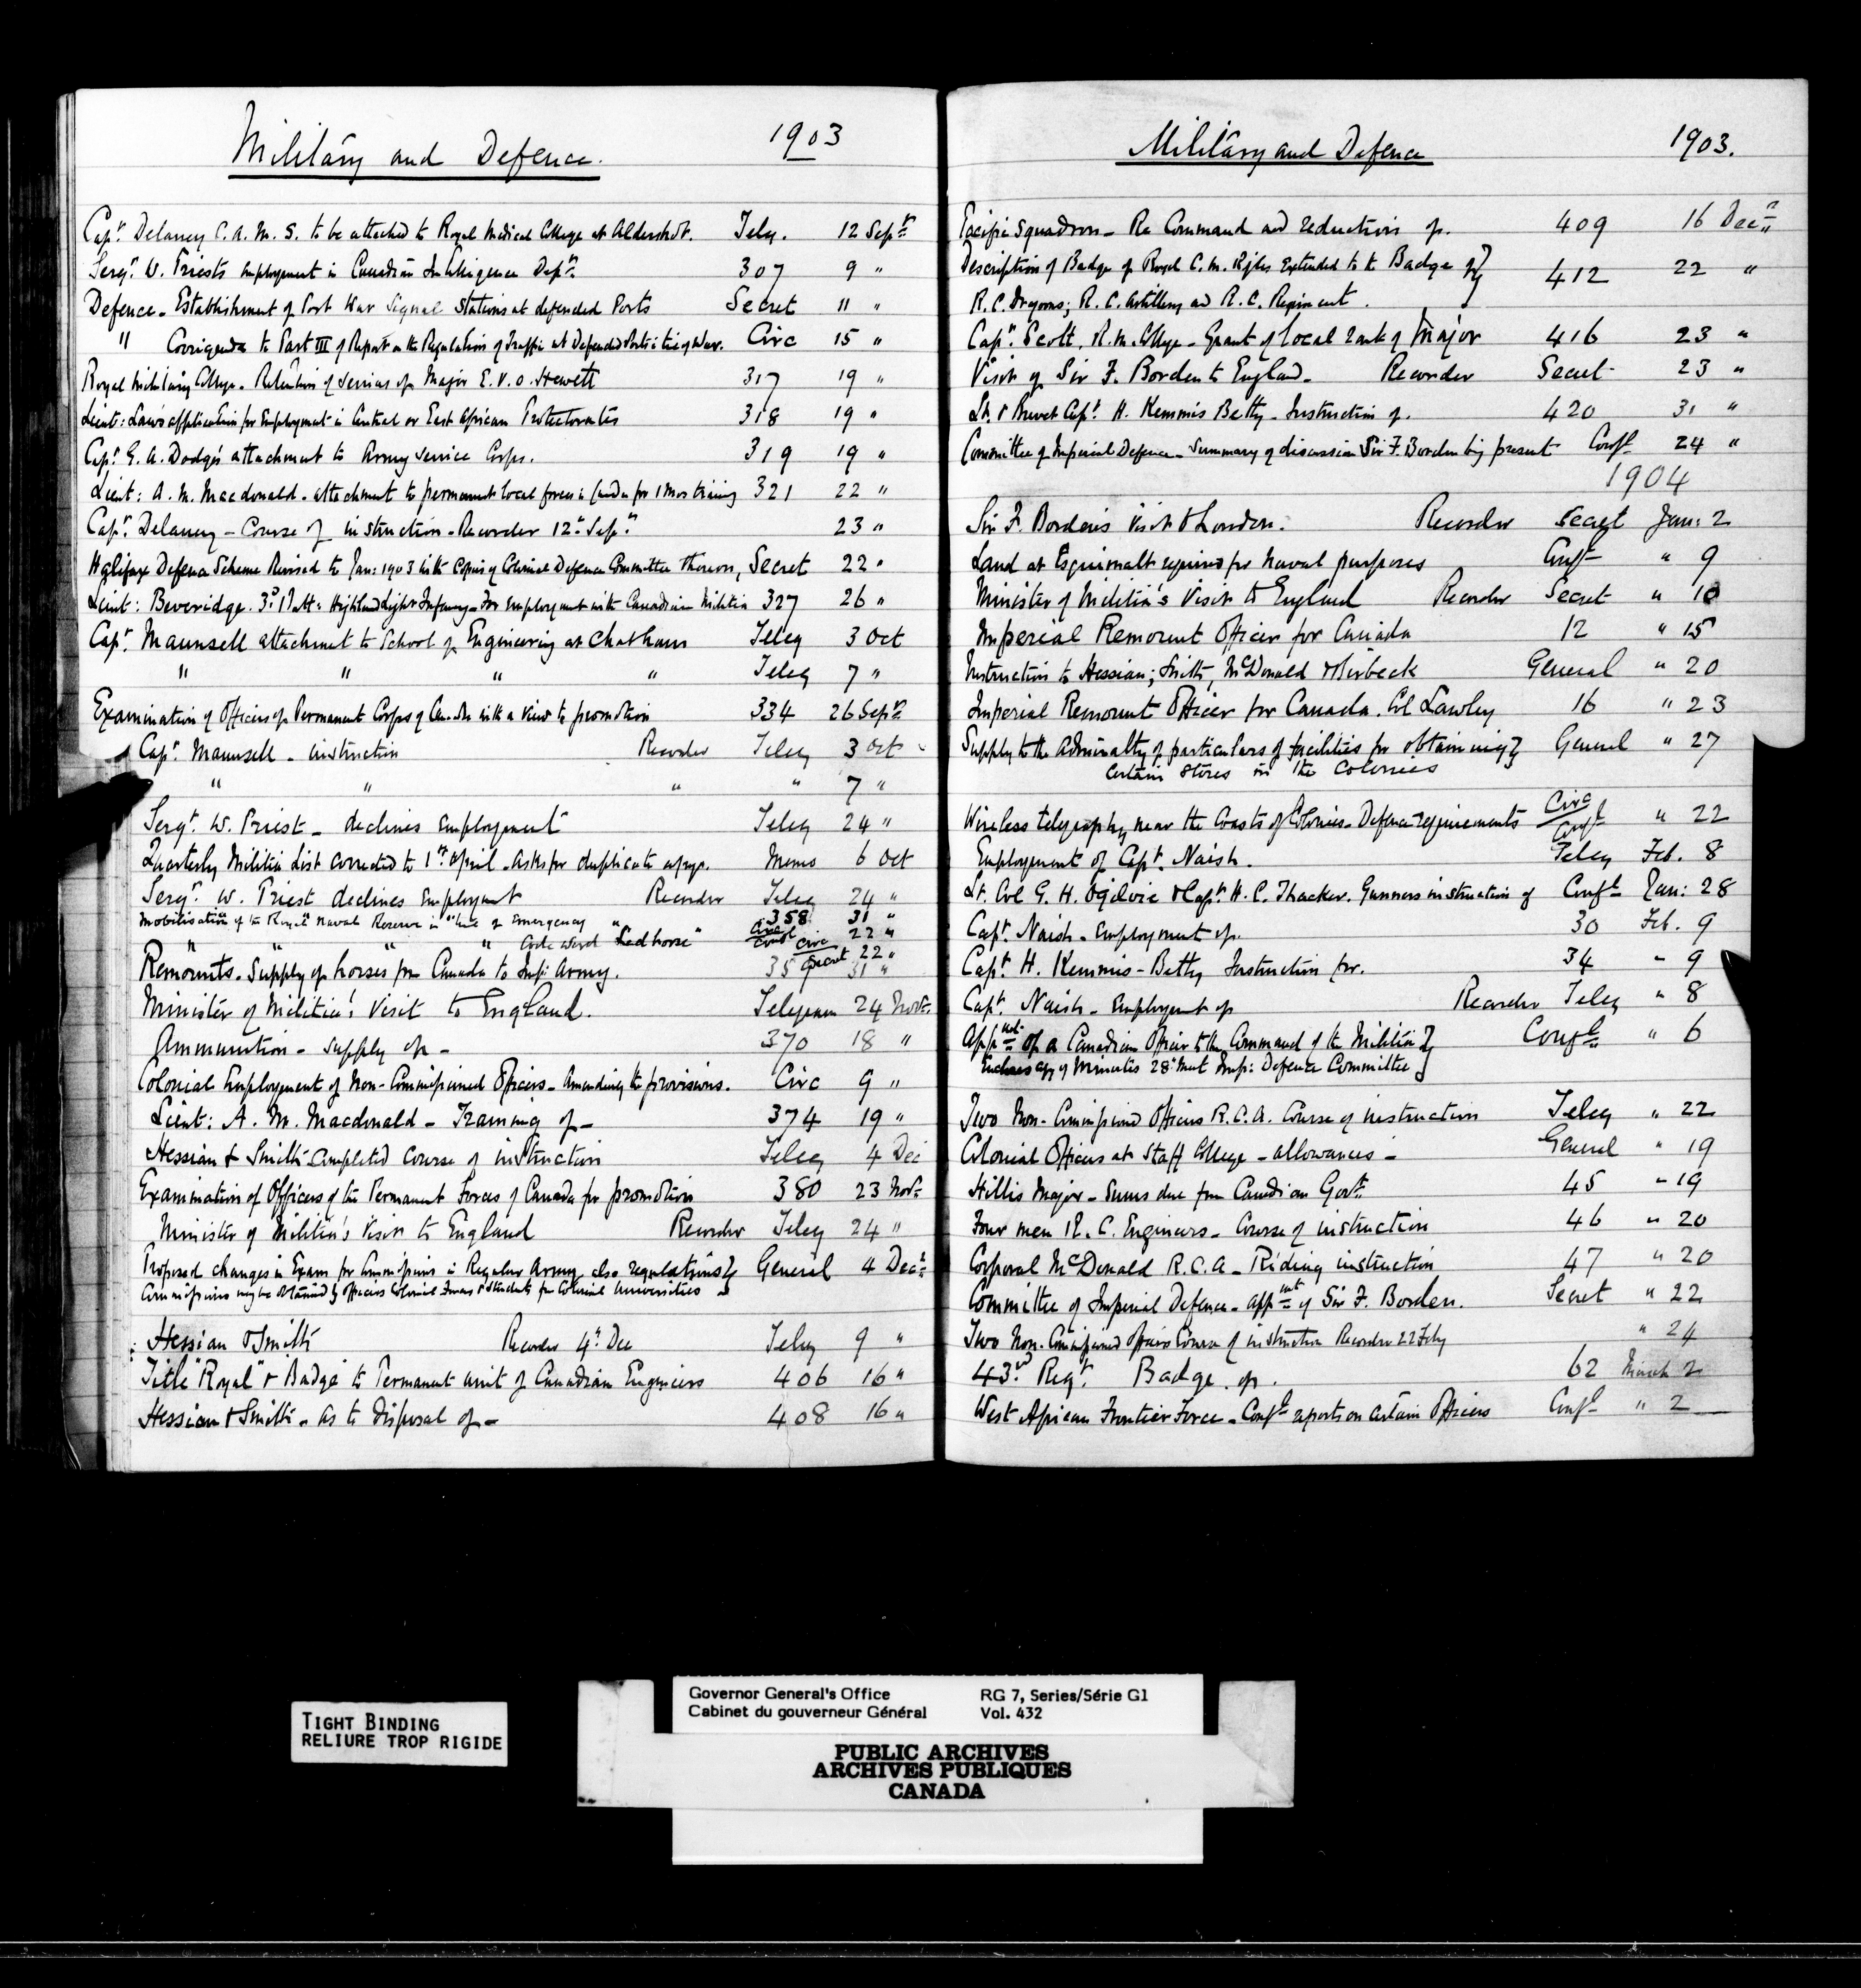 Military and Defence. 1903
Capt. Delaney C.A.M.S. to be attached to Royal Medical College at Aldershot. Teleg. 12 Septr
Sergt. W. Priest's employment in Canadian Intelligence Dept. 307 9 "
Defence - Establishment of Port War Signal Stations at defended Ports Secret 11 "
" Corrigenda to Part III of Report on the Regulation of Traffic at Defended Ports in time of War. Circ 15 "
Royal Military College - Retention of services of Major E.V.O. Hewett 317 19 "
Lieut: Law's application for Employment in Central or East African Protectorates 318 19 "
Capt. G. A. Dodge's attachment to Army Service Corps. 319 19 "
Lieut: A. M. Macdonald - attachment to permanent local forces in Canada for 1 Mos training 321 22 "
Capt. Delaney - Course of instruction - Recorder 12th Sept. 23 "
Halifax Defence Scheme Revised to Jan: 1903 with copies of Colonial Defence Committee thereon, Secret 22 "
Lieut: Beveridge. 3rd Batt: Highland Light Infantry - For employment with Canadian Militia 327 26 "
Capt. Maunsell attachment to School of Engineering at Chatham Teleg 3 Oct
" " " " Teleg 7 "
Examination of Officers of Permanent Corps of Canada with a view to promotion 334 26 Septr
Capt. Maunsell - instruction Recorder Teleg 3 Oct
" " " " 7 "
Sergt. W. Priest - declines employment Teleg 24 "
Quarterly Militia List corrected to 1st April - Asks for duplicate copy. Memo 6 Oct
Sergt. W. Priest declines Employment Recorder Teleg 24 "
Mobilisation of the Royal Naval Reserve in time of Emergency " 358 31 "
" " " " Code word "Redhorse" Circ Confl 22 "
Circ Secret 22 "
Remounts - Supply of horses from Canada to Imp: Army. 35 31 "
Minister of Militia's Visit to England. Telegram 24 Novr.
Ammunition - supply of - 370 18 "
Colonial Employment of Non-Commissioned Officers - Amending the provisions. Circ 9 "
Lieut: A. M. Macdonald - Training of - 374 19 "
Hessian & Smith - Completed course of instruction Teleg 4 Dec
Examination of Officers of the Permanent Forces of Canada for promotion 380 23 Novr
Minister of Militia's Visit to England Recorder Teleg 24 "
Proposed changes in Exam for Commissions in Regular Army also regulations } General 4 Decr
Commissions may be obtained by Officers Colonial Forces & Students from Colonial Universities
Hessian & Smith Recorder 4th Dec Teleg 9 "
Title "Royal" & Badge to Permanent unit of Canadian Engineers 406 16 "
Hessian & Smith - As to Disposal of - 408 16 "
Military and Defence 1903.
Pacific Squadron - Re Command and reduction of. 409 16 Decr
Description of Badge of Royal C. M. Rifles Extended to the Badge of } 412 22 "
R. C. Dragoons; R. C. Artillery and R. C. Regiment.
Capt. Scott, R.M. College - Grant of local rank of Major 416 23 "
Visit of Sir F. Borden to England - Recorder Secret 23 "
Lt. & Brevet Capt. H. Kemmis Betty - Instruction of. 420 31 "
Committee of Imperial Defence - Summary of discussion Sir F. Borden being present Confl 24 "
1904
Sir F. Borden's visit to London. Recorder Secret Jan: 2
Land at Esquimalt required for Naval purposes Confl " 9
Minister of Militia's Visit to England Recorder Secret " 10
Imperial Remount Officer for Canada 12 " 15
Instruction to Hessian; Smith, McDonald & Birbeck General " 20
Imperial Remount Officer for Canada. Col Lawley 16 " 23
Supply to the Admiralty of particulars of facilities for obtaining } General " 27
certain stores in the Colonies
Wireless telegraphy near the Coasts of Colonies - Defence requirements Circ Confl " 22
Employment of Capt. Naish. Teleg Feb. 8
Lt. Col G. H. Ogilvie & Capt. H. C. Thacker. Gunners instruction of Confl Jan: 28
Capt. Naish - Employment of. 30 Feb. 9
Capt. H. Kemmis-Betty Instruction for. 34 " 9
Capt. Naish - Employment of Recorder Teleg " 8
Appmt of a Canadian Officer to the Command of the Militia } Confl " 6
Encloses copy of Minutes 28th Meet Imp: Defence Committee }
Two Non-Commissioned Officers R.C.A. Course of instruction Teleg " 22
Colonial Officers at Staff College - allowances - General " 19
Hillis Major - Sums due from Canadian Govt. 45 " 19
Four men R. C. Engineers - Course of instruction 46 " 20
Corporal McDonald R.C.A - Riding instruction 47 " 20
Committee of Imperial Defence - appmt of Sir F. Borden. Secret " 22
Two Non-Commissioned Officers Course of instruction Recorder 22 Feby " 24
43rd Regt. Badge of. 62 March 2
West African Frontier Force - Confl reports on certain Officers Confl " 2
TIGHT BINDING
RELIURE TROP RIGIDE
Governor General's Office RG 7, Series/Série G1
Cabinet du gouverneur Général Vol. 432
PUBLIC ARCHIVES
ARCHIVES PUBLIQUES
CANADA